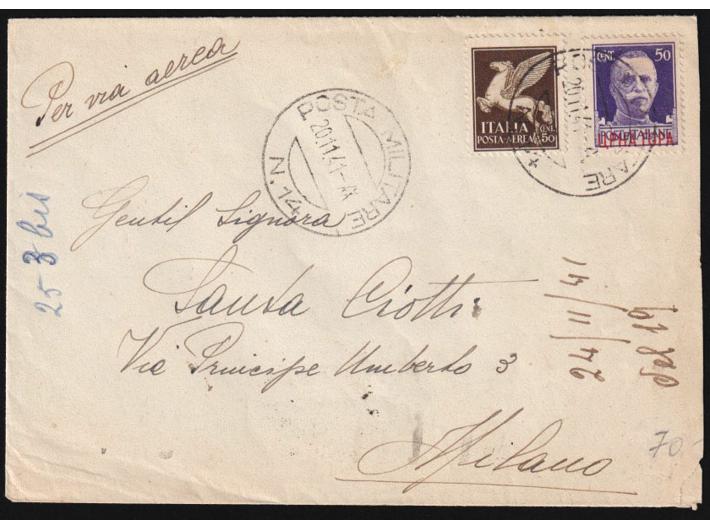 Per via aerea
ITALIA
CENT. 50
POSTA·AEREA
CENT. 50
POSTE ITALIANE
ЦРНА ГОРА
POSTA MILITARE N. 14
20.11.41.XX
20.11.41
25 3 bis
Gentil Signora
Santa Ciotti
Via Principe Umberto 3
Milano
24/11/41
70